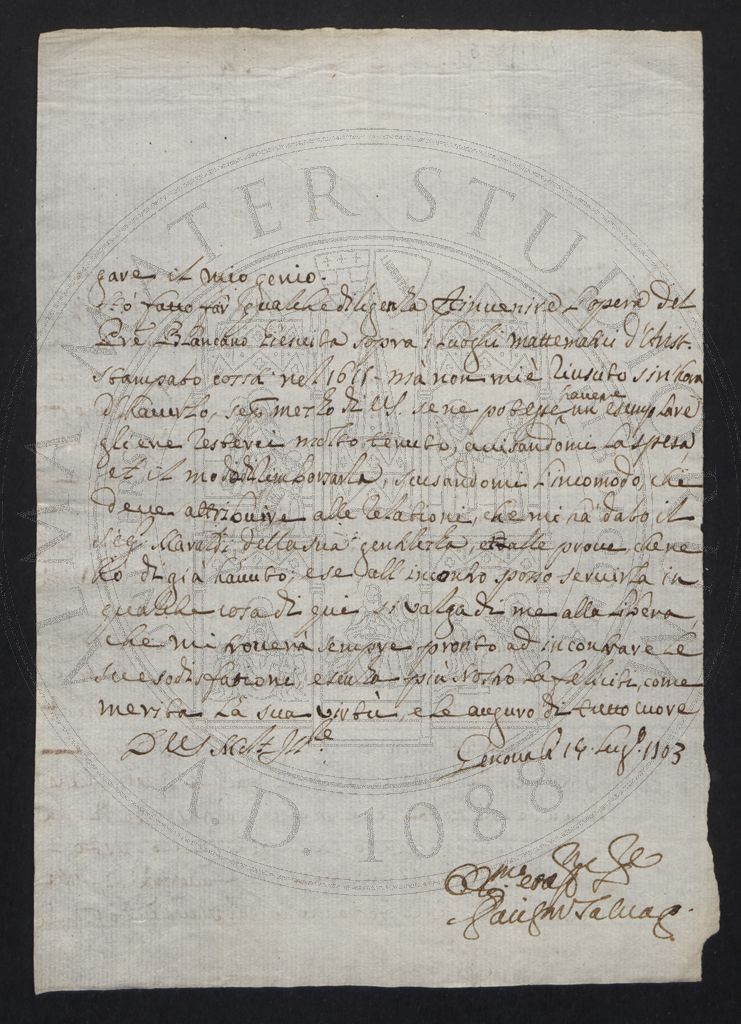 gare il mio genio.
Hò fatto far qualche diligenza p rinvenire l'opera del
Pre Blancano Giesuita sopra i luoghi mattematici d'Arist.
stampato costà nel 1615. mà non miè riusuto sin hora
d'haverlo, se p mezzo di VS. se ne potesse havere un esemplare
gliene resterei molto tenuto, avisandomi la spesa,
et il modo di rimborzarla, scusandomi l'incomodo, che
deve attribuire alle relationi, che mi hà dato il
Sigr Maraldi della sua gentilezza, et alle prove che ne
hò di già havuto; e se all'incontro posso servirla in
qualche cosa di qui si valga di me alla libera,
che mi troverà sempre pronto ad incontrare le
sue sodisfationi, e senza più resto la feliciti, come
merita la sua virtù, e le auguro di tutto cuore
D VS Molt Ille
Genova li 14. Lugo. 1703
ALMA MATER STUDIORUM
A.D. 1088